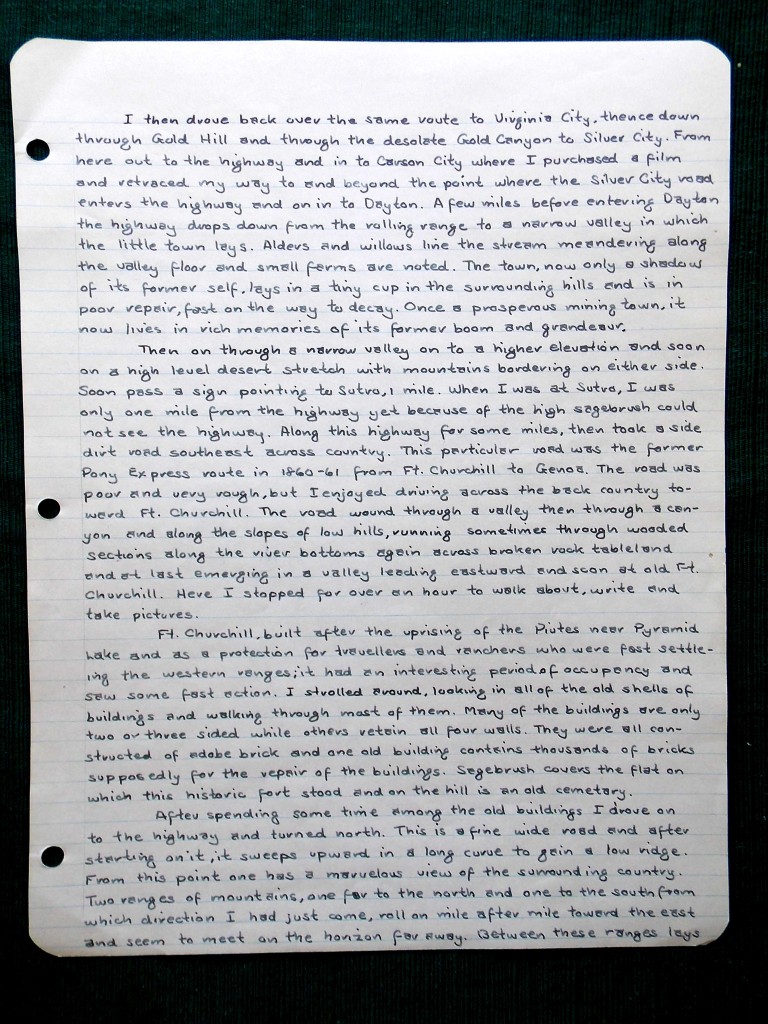 I then drove back over the same route to Virginia City, thence down
through Gold Hill and through the desolate Gold Canyon to Silver City. From
here out to the highway and in to Carson City where I purchased a film
and retraced my way to and beyond the point where the Silver City road
enters the highway and on in to Dayton. A few miles before entering Dayton
the highway drops down from the rolling range to a narrow valley in which
the little town lays. Alders and willows line the stream meandering along
the valley floor and small farms are noted. The town, now only a shadow
of its former self, lays in a tiny cup in the surrounding hills and is in
poor repair, fast on the way to decay. Once a prosperous mining town, it
now lives in rich memories of its former boom and grandeaur.
Then on through a narrow valley on to a higher elevation and soon
on a high level desert stretch with mountains bordering on either side.
Soon pass a sign pointing to Sutro, 1 mile. When I was at Sutro, I was
only one mile from the highway yet because of the high sagebrush could
not see the highway. Along this highway for some miles, then took a side
dirt road southeast across country. This particular road was the former
Pony Express route in 1860-61 from Ft. Churchill to Genoa. The road was
poor and very rough, but I enjoyed driving across the back country to-
ward Ft. Churchill. The road wound through a valley then through a can-
yon and along the slopes of low hills, running sometimes through wooded
sections along the river bottoms again across broken rock tableland
and at last emerging in a valley leading eastward and soon at old Ft.
Churchill. Here I stopped for over an hour to walk about, write and
take pictures.
Ft. Churchill, built after the uprising of the Piutes near Pyramid
Lake and as a protection for travellers and ranchers who were fast settle-
ing the western ranges; it had an interesting period of occupancy and
saw some fast action. I strolled around, looking in all of the old shells of
buildings and walking through most of them. Many of the buildings are only
two or three sided while others retain all four walls. They were all con-
structed of adobe brick and one old building contains thousands of bricks
supposedly for the repair of the buildings. Sagebrush covers the flat on
which this historic fort stood and on the hill is an old cemetary.
After spending some time among the old buildings I drove on
to the highway and turned north. This is a fine wide road and after
starting on it, it sweeps upward in a long curve to gain a low ridge.
From this point one has a marvelous view of the surrounding country.
Two ranges of mountains, one far to the north and one to the south from
which direction I had just come, roll on mile after mile toward the east
and seem to meet on the horizon far away. Between these ranges lays